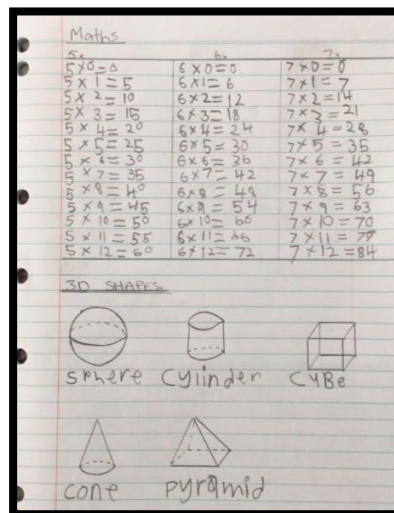 Maths
5x 6x 7x
5×0=0 6×0=0 7×0=0
5×1=5 6×1=6 7×1=7
5×2=10 6×2=12 7×2=14
5×3=15 6×3=18 7×3=21
5×4=20 6×4=24 7×4=28
5×5=25 6×5=30 7×5=35
5×6=30 6×6=36 7×6=42
5×7=35 6×7=42 7×7=49
5×8=40 6×8=48 7×8=56
5×9=45 6×9=54 7×9=63
5×10=50 6×10=60 7×10=70
5×11=55 6×11=66 7×11=77
5×12=60 6×12=72 7×12=84
3D SHAPES
sphere cylinder CUBe
cone pyramid